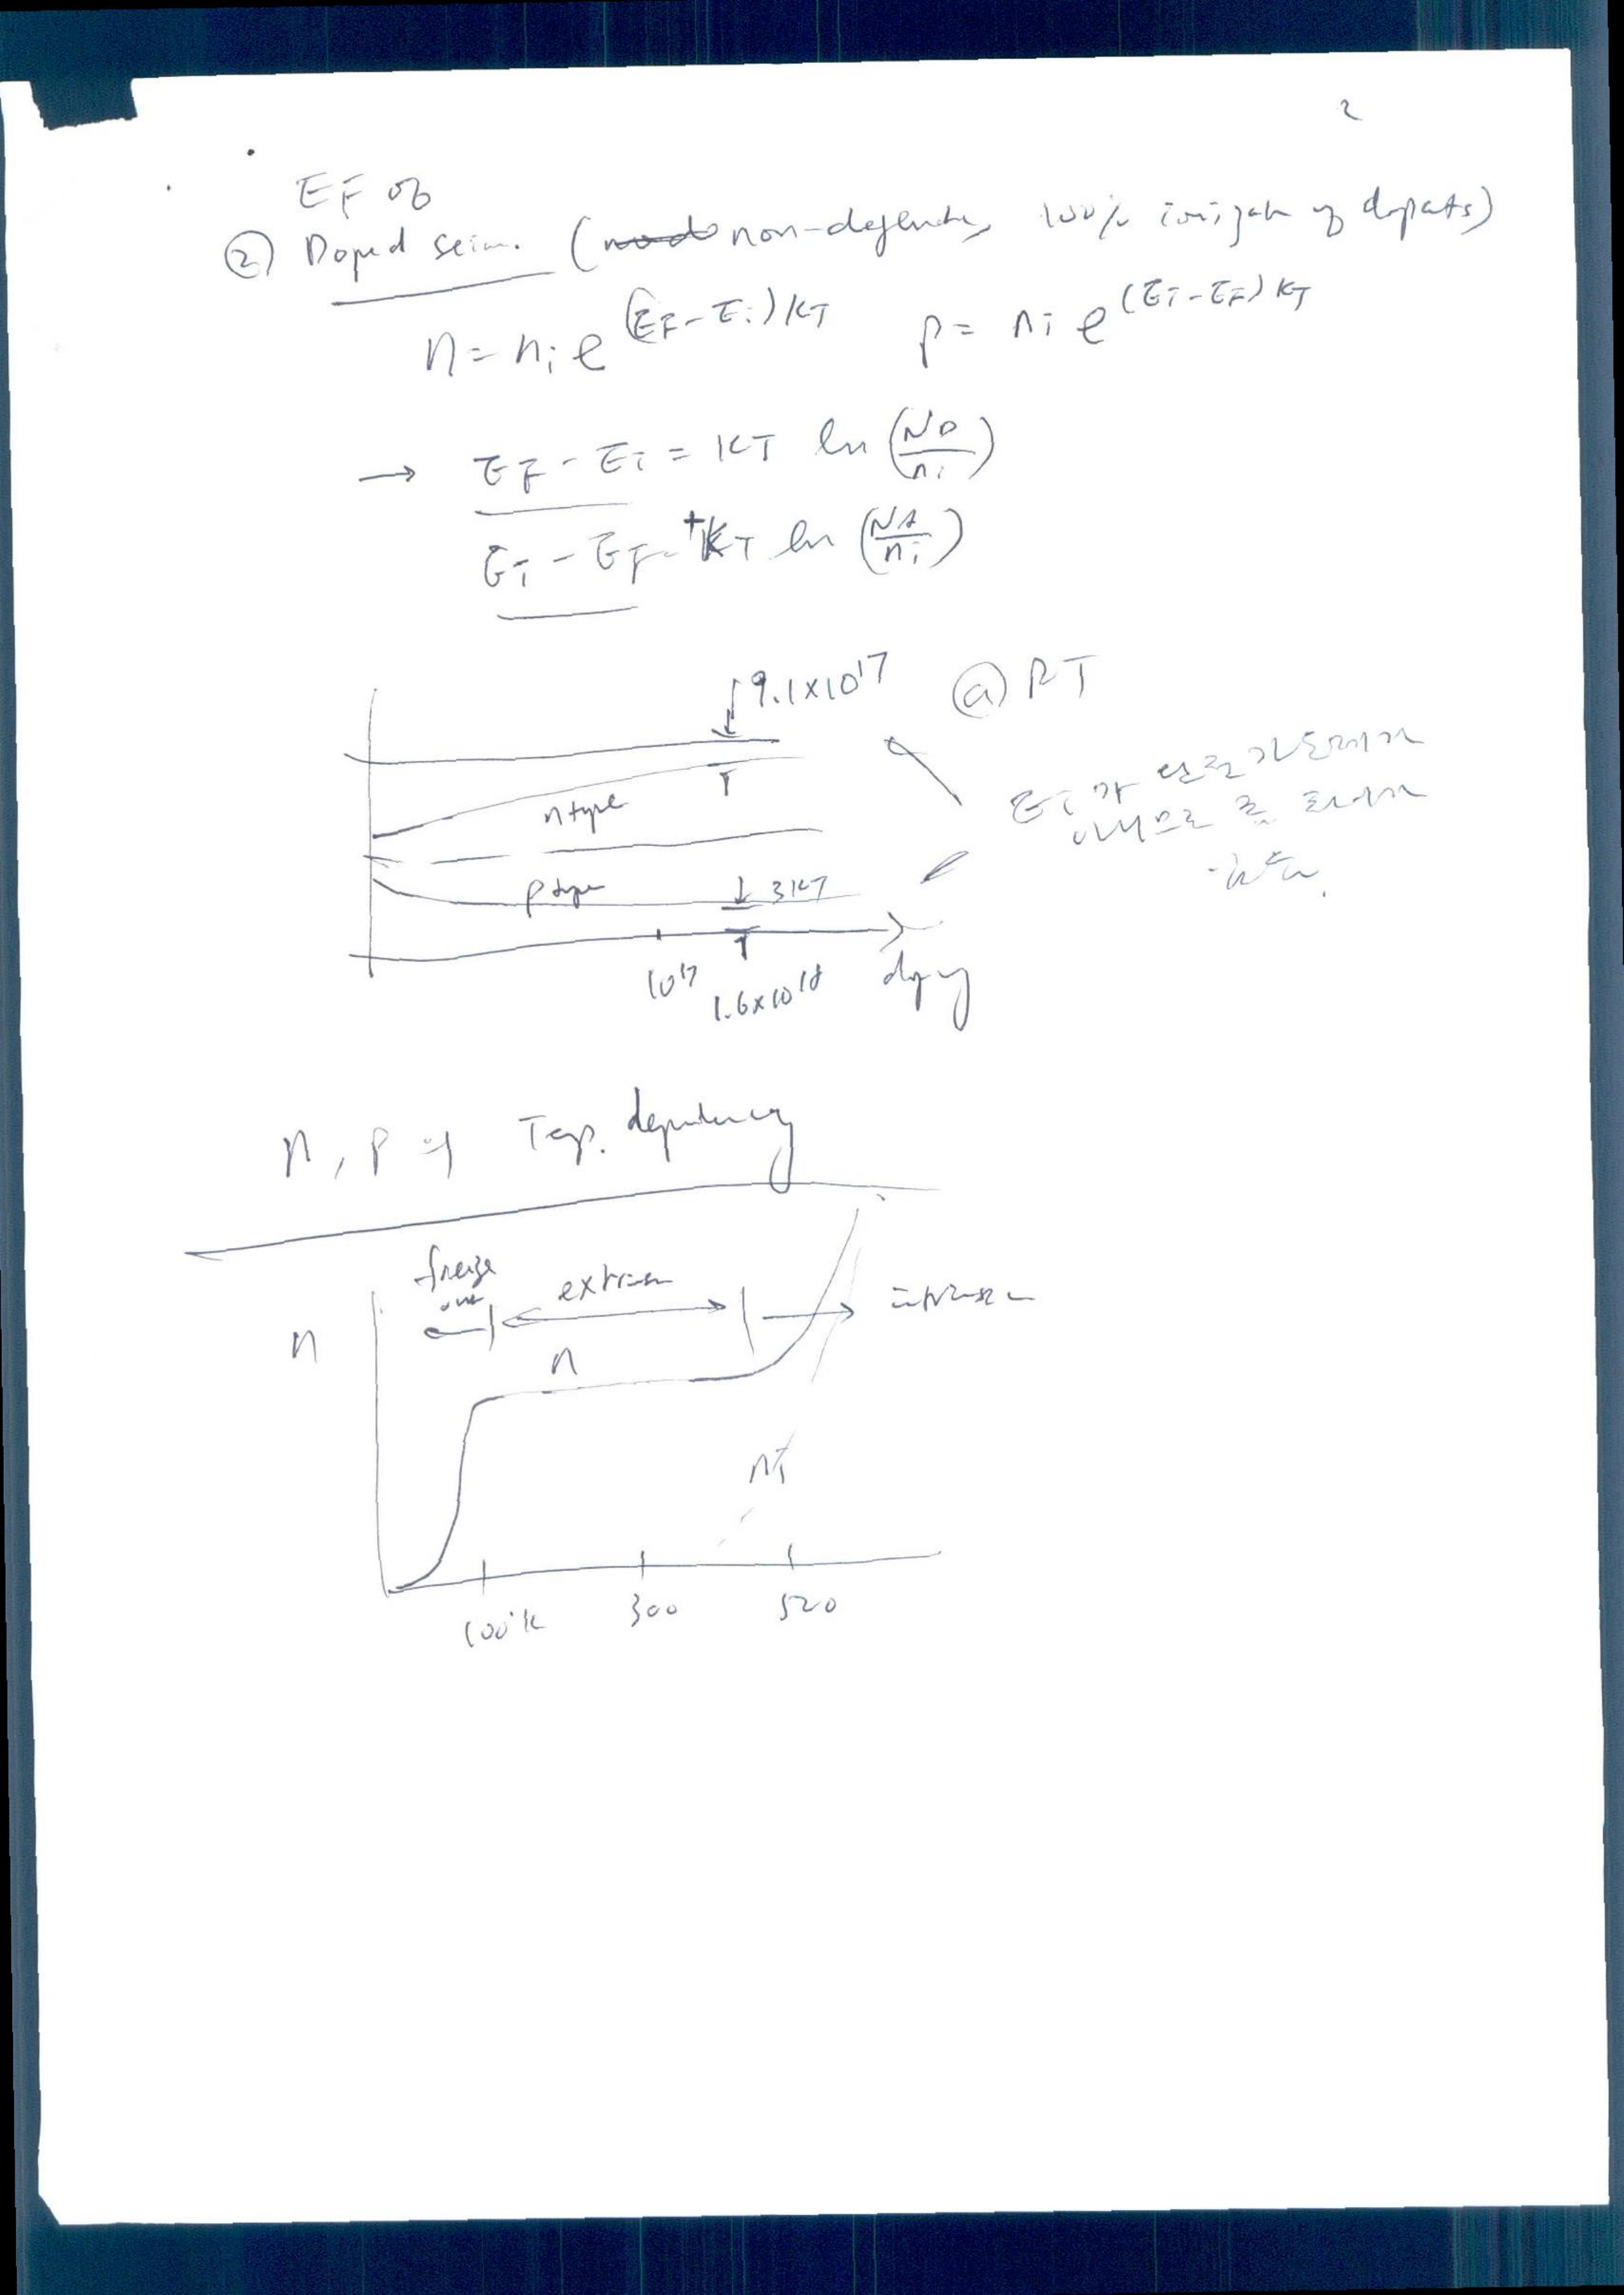 2
EF of
② Doped semi. (non-degenerate, 100% ionization of dopants)
n = ni e^(EF-Ei)/KT   p = ni e^(Ei-EF)/KT
→ EF - Ei = KT ln (ND/ni)
Ei - EF = +KT ln (NA/ni)
9.1×10^17
@ RT
n type
p type
3KT
10^17
1.6×10^18
doping
n, p의 Temp. dependency
freeze
out
extrinsic
intrinsic
n
n
ni
100°K 300 520